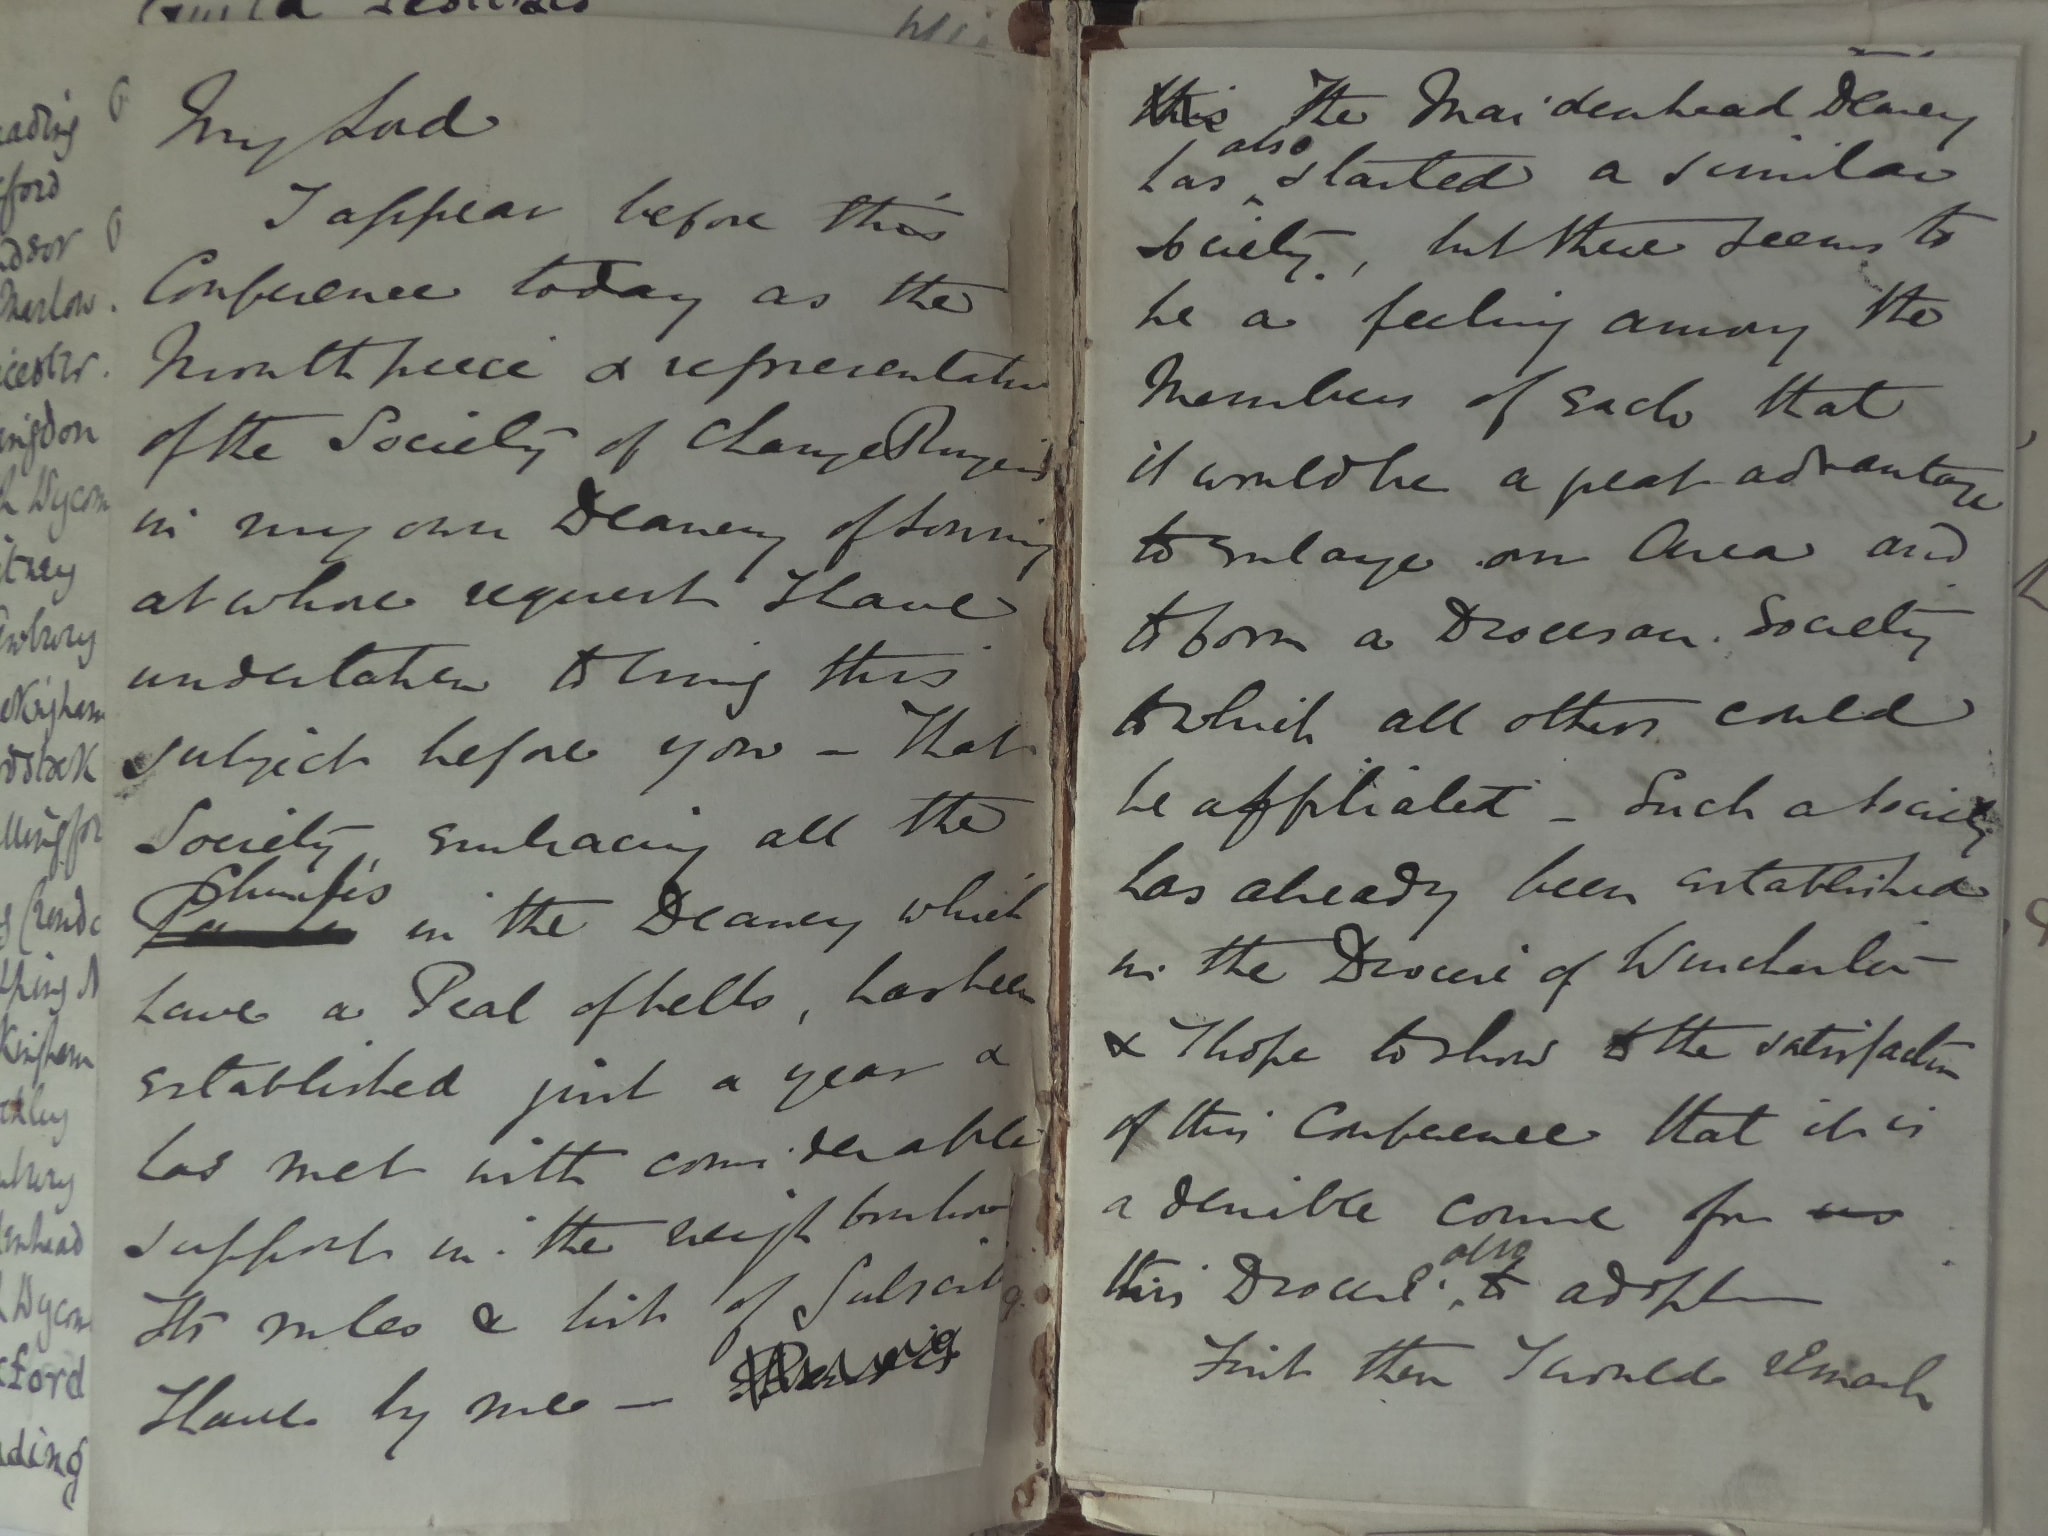 My Lord
I appear before this
Conference today as the
Mouthpiece & representative
of the Society of Change Ringers
in my own Deanery of Sonning
at whose request I have
undertaken to bring this
subject before you — That
Society, embracing all the
Churches
in the Deanery which
have a Peal of bells, has been
established just a year &
has met with considerable
support in the neighbourhood
Its rules & list of Subscrib
I have by me —
this The Maidenhead Deanery
also
has started a similar
Society, but there seems to
be a feeling among the
Members of each that
it would be a great advantage
to enlarge our Area and
to form a Diocesan Society
to which all others could
be affiliated — Such a Society
has already been established
in the Diocese of Winchester —
& I hope to show to the satisfaction
of this Conference that it is
a desirable course for us
also
this Diocese to adopt —
First then I would remark
ading
ford
dsor
Marlow.
icester.
ingdon
h Wycom
tney
ewbury
ckingham
odstock
llingfor
kingham
ckley
enhead
h Wycom
xford
ading